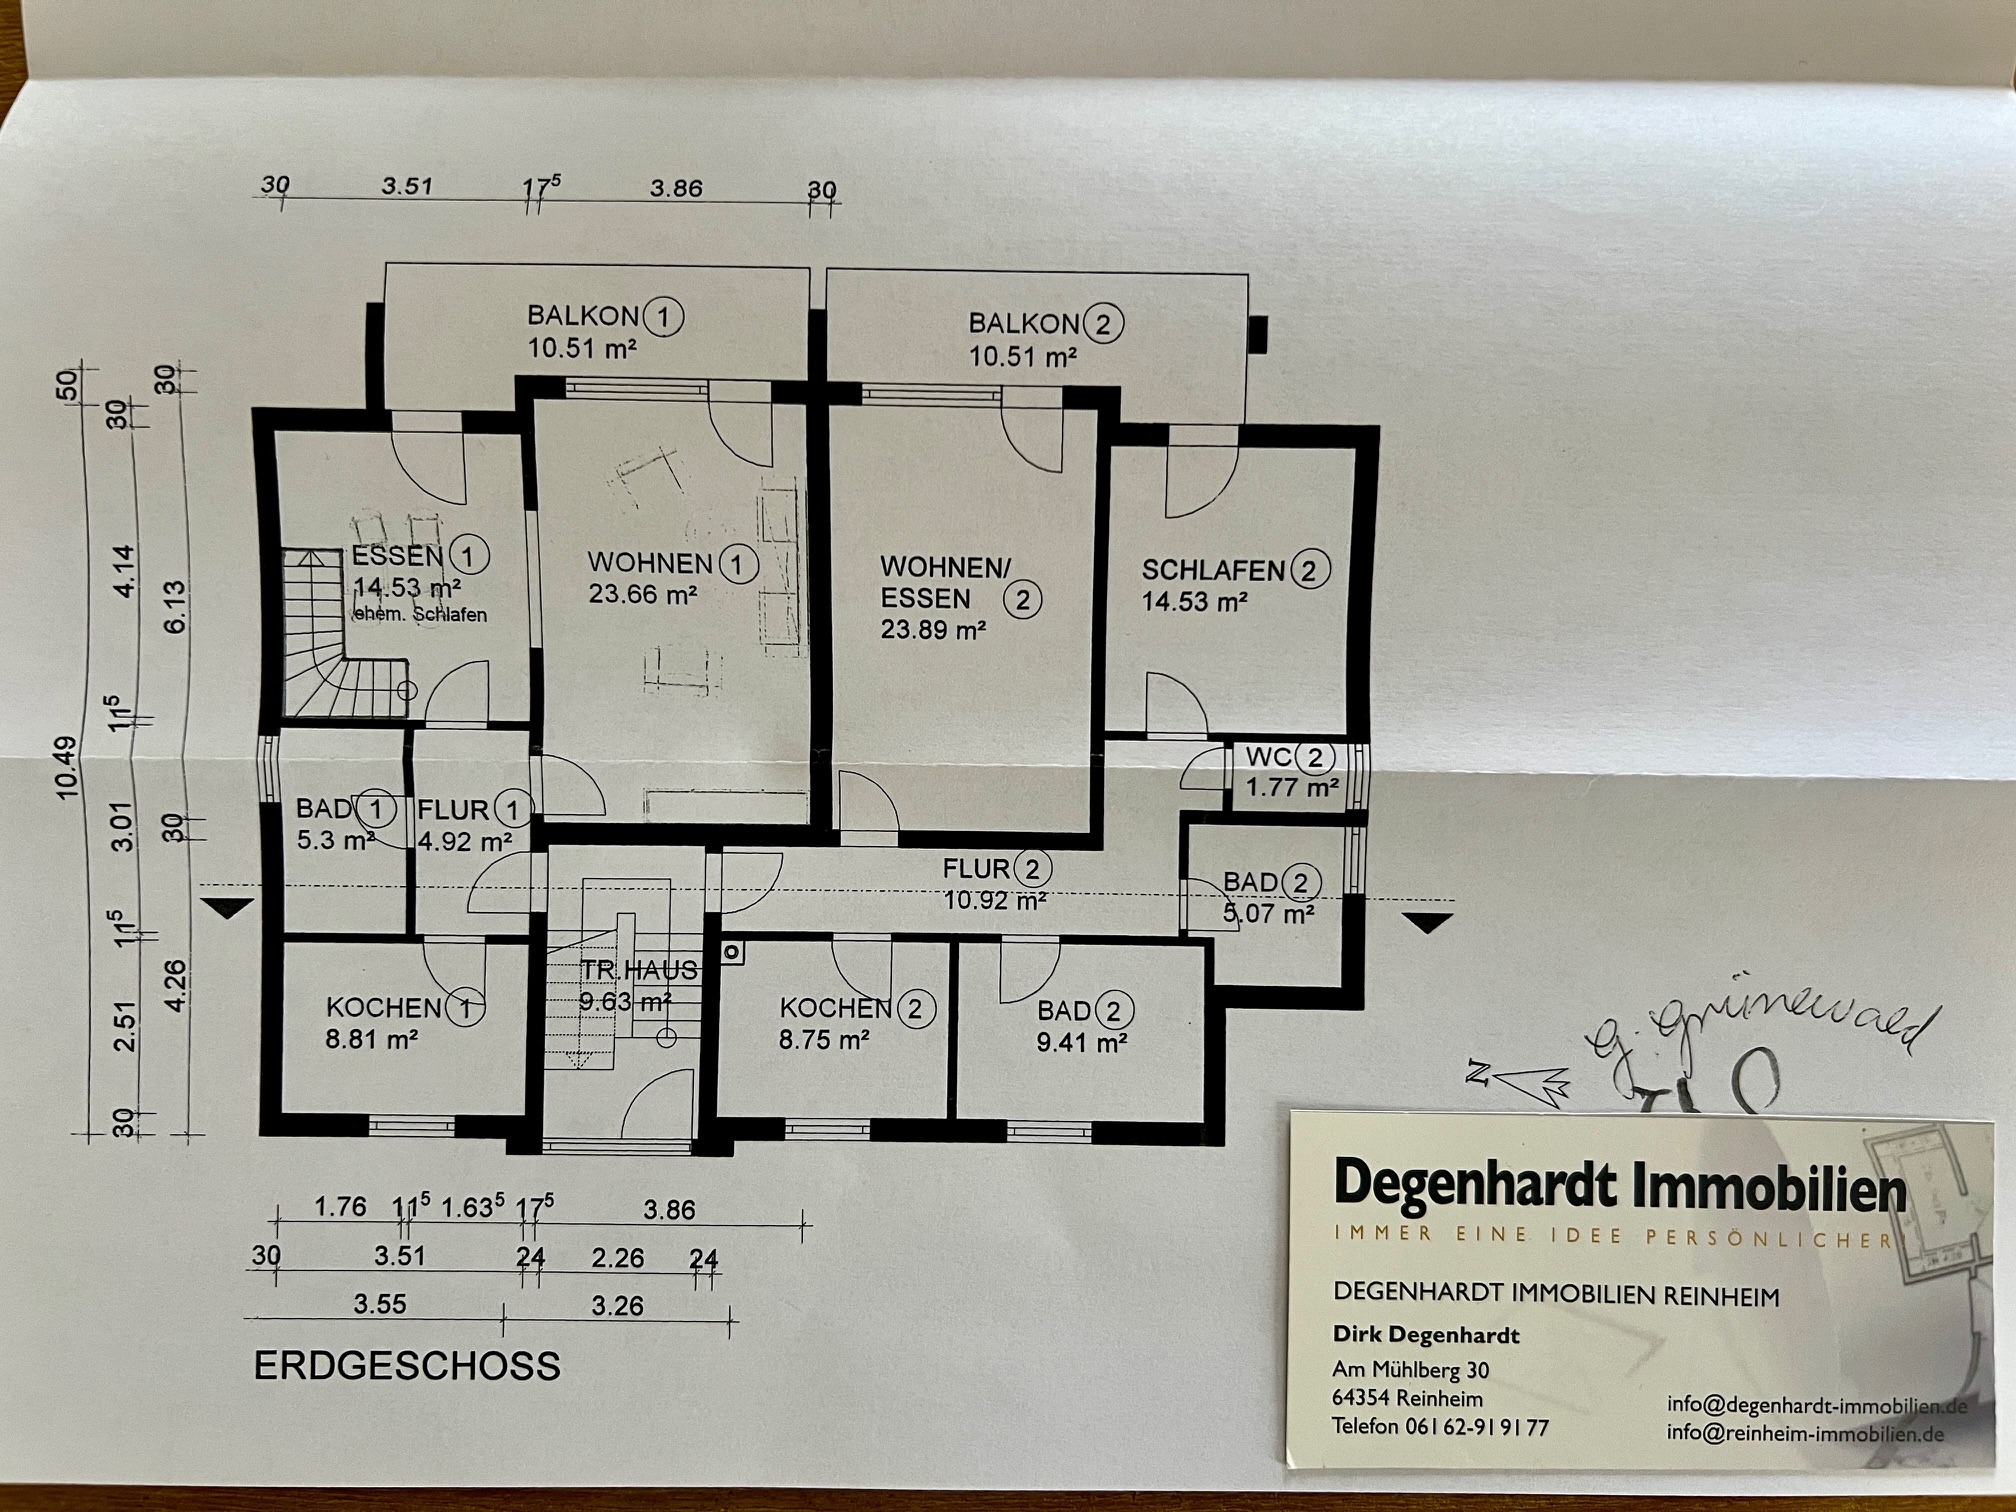 30 3.51 17⁵ 3.86 30
BALKON 1
10.51 m²
BALKON 2
10.51 m²
50
30
30
4.14
6.13
11⁵
10.49
3.01
30
11⁵
4.26
2.51
30
ESSEN 1
14.53 m²
ehem. Schlafen
WOHNEN 1
23.66 m²
WOHNEN/
ESSEN 2
23.89 m²
SCHLAFEN 2
14.53 m²
WC 2
1.77 m²
BAD 1
5.3 m²
FLUR 1
4.92 m²
FLUR 2
10.92 m²
BAD 2
5.07 m²
TR.HAUS
9.63 m²
KOCHEN 1
8.81 m²
KOCHEN 2
8.75 m²
BAD 2
9.41 m²
N
G. Grünewald
1.76 11⁵ 1.63⁵ 17⁵ 3.86
30 3.51 24 2.26 24
3.55 3.26
ERDGESCHOSS
Degenhardt Immobilien
IMMER EINE IDEE PERSÖNLICHER
DEGENHARDT IMMOBILIEN REINHEIM
Dirk Degenhardt
Am Mühlberg 30
64354 Reinheim
Telefon 06162-919177
info@degenhardt-immobilien.de
info@reinheim-immobilien.de